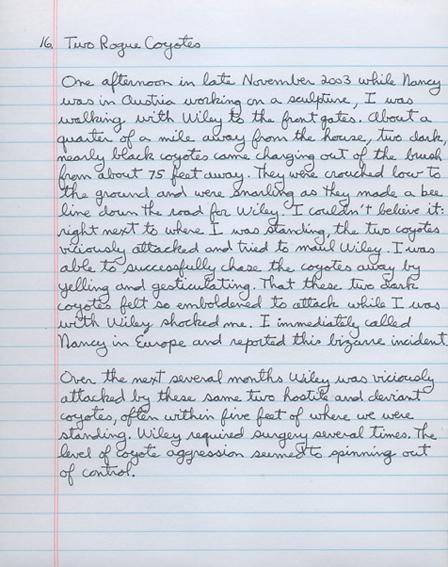 16. Two Rogue Coyotes
One afternoon in late November 2003 while Nancy
was in Austria working on a sculpture, I was
walking with Wiley to the front gates. About a
quarter of a mile away from the house, two dark,
nearly black coyotes came charging out of the brush
from about 75 feet away. They were crouched low to
the ground and were snarling as they made a bee
line down the road for Wiley. I couldn't believe it:
right next to where I was standing, the two coyotes
viciously attacked and tried to maul Wiley. I was
able to successfully chase the coyotes away by
yelling and gesticulating. That these two dark
coyotes felt so emboldened to attack while I was
with Wiley shocked me. I immediately called
Nancy in Europe and reported this bizarre incident.
Over the next several months Wiley was viciously
attacked by these same two hostile and deviant
coyotes, often within five feet of where we were
standing. Wiley required surgery several times. The
level of coyote aggression seemed to spinning out
of control.